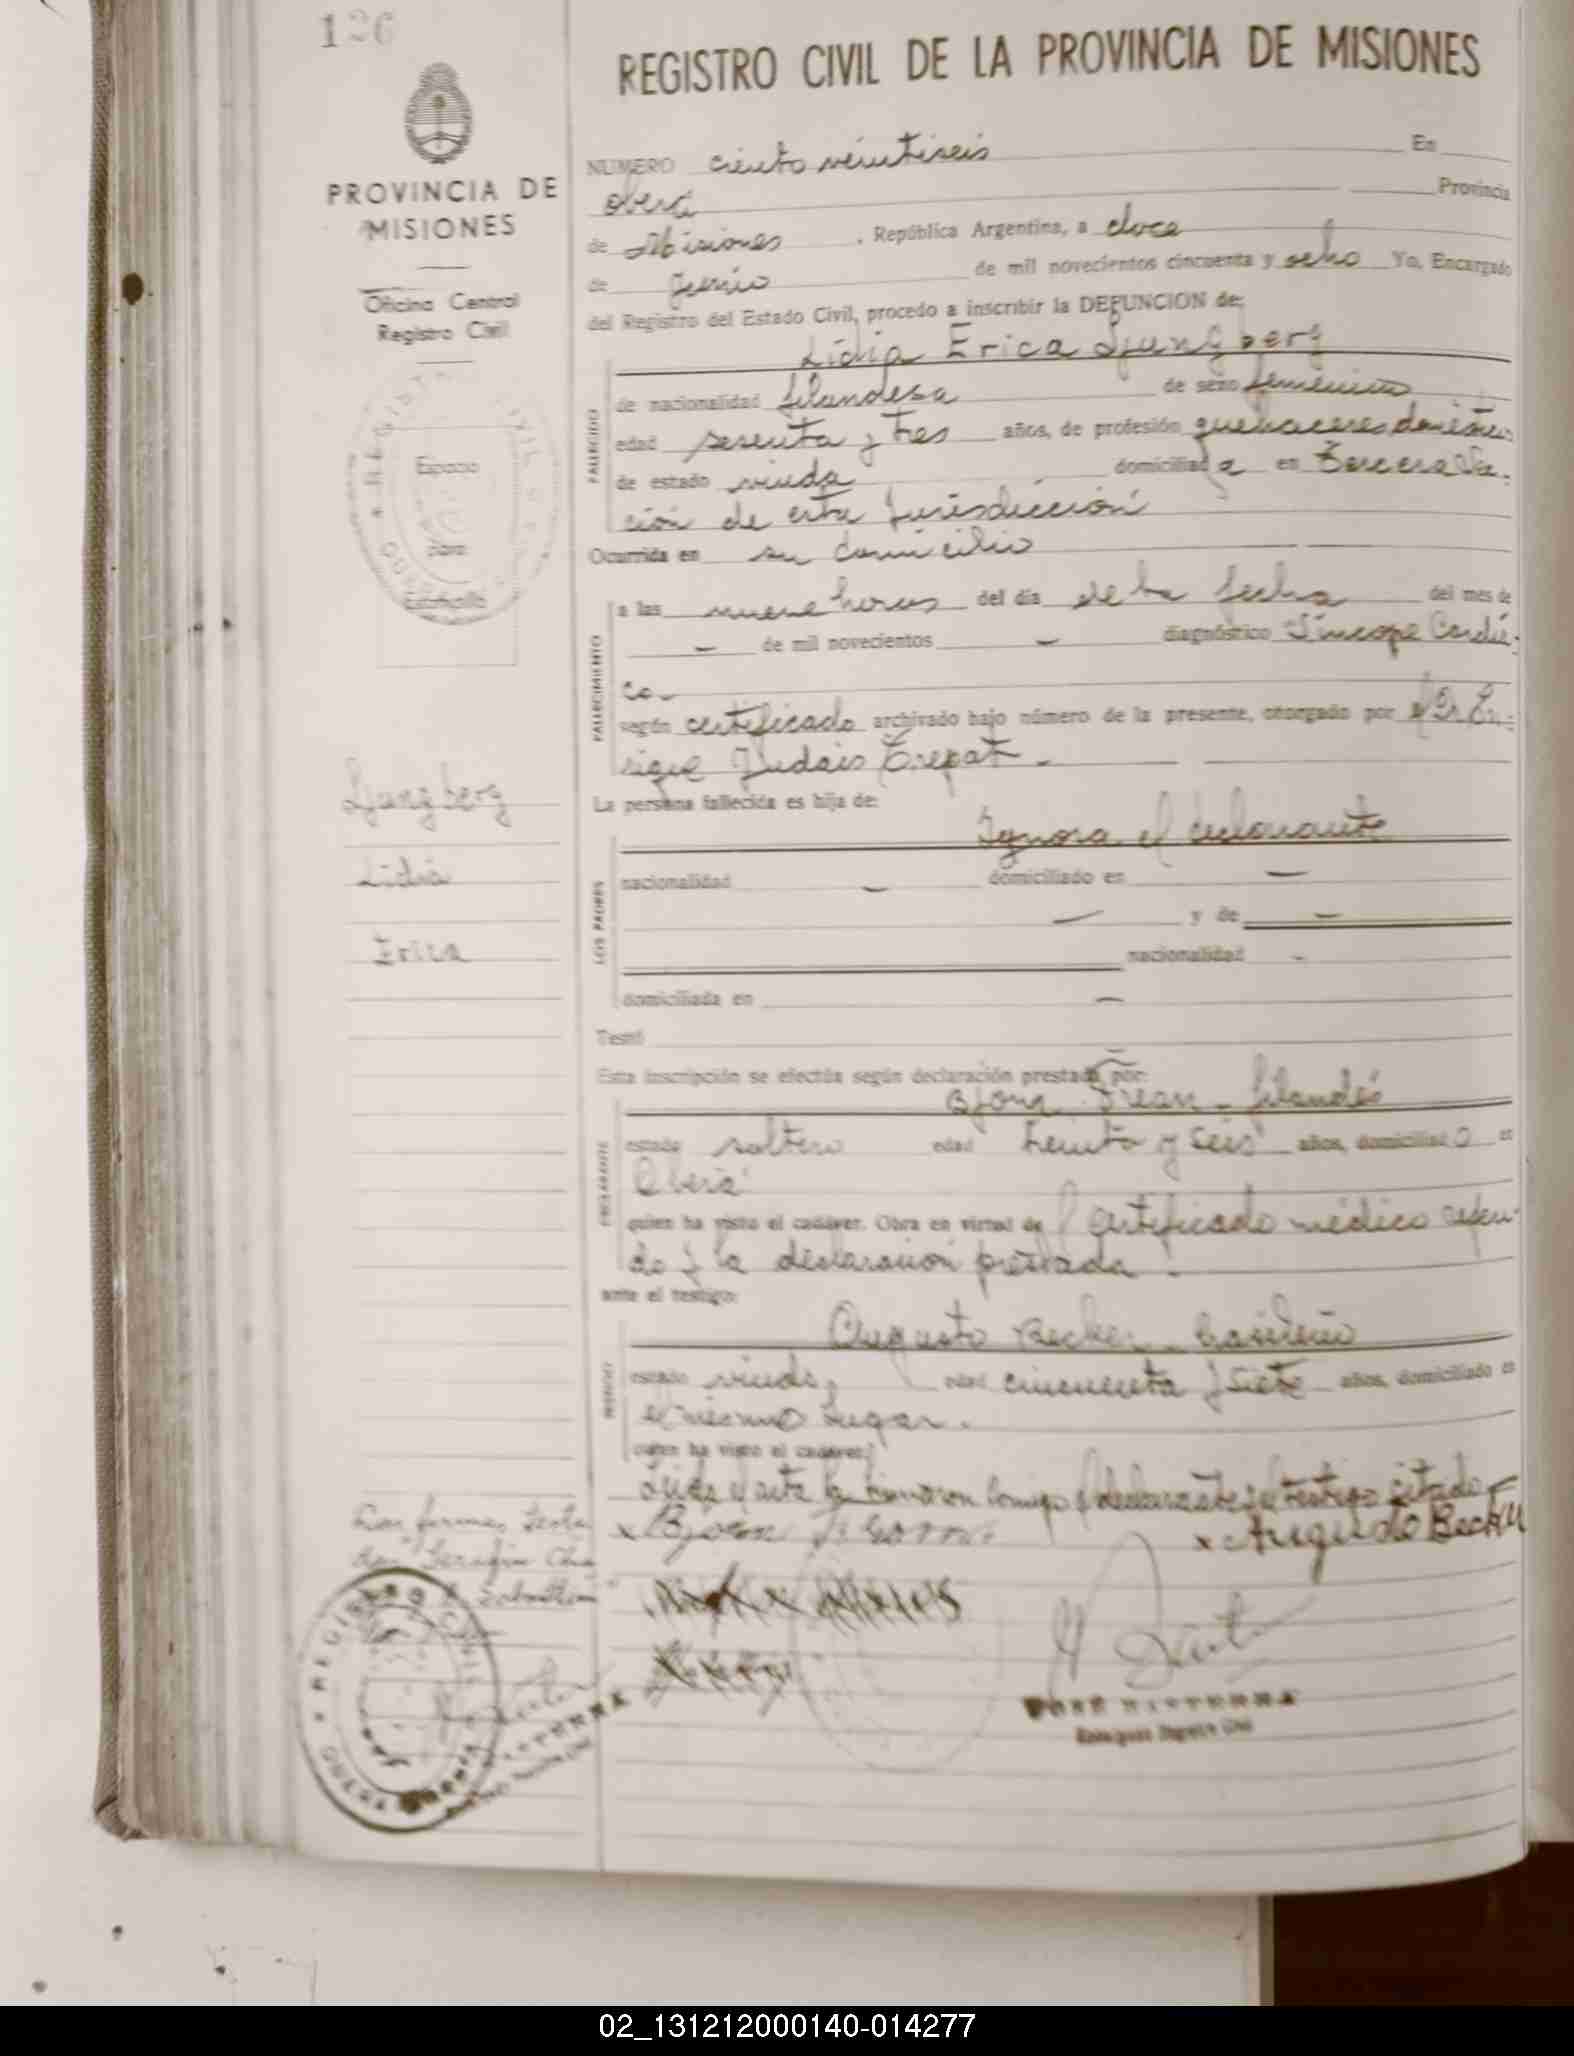 126
REGISTRO CIVIL DE LA PROVINCIA DE MISIONES
PROVINCIA DE
MISIONES
Oficina Central
Registro Civil
Espacio
para
Estampilla
NUMERO ciento veintiseis En
oberá Provincia
de Misiones, República Argentina, a doce
de Junio de mil novecientos cincuenta y ocho Yo, Encargado
del Registro del Estado Civil, procedo a inscribir la DEFUNCION de:
Lidia Erica Ljungberg
FALLECIDO
de nacionalidad filandesa de sexo femenino
edad sesenta y tres años, de profesión quehaceres domésticos
de estado viuda domiciliada en Tercera Sec-
ción de esta Jurisdicción
Ocurrida en su domicilio
FALLECIMIENTO
a las nueve horas del día de la fecha del mes de
— de mil novecientos — diagnóstico Síncope Cardía-
co-
según certificado archivado bajo número de la presente, otorgado por el Dr. En-
rique Judais Trepat -
La persona fallecida es hija de:
Ignora el declarante
LOS PADRES
nacionalidad — domiciliado en —
— y de —
nacionalidad -
domiciliada en —
Testó
Esta inscripción se efectúa según declaración prestada por:
filandés
DECLARANTE
estado soltero edad treinta y seis años, domiciliado en
Oberá
quien ha visto el cadáver. Obra en virtud de certificado médico
y la declaración prestada -
ante el testigo:
Augusto Becker - brasileño
TESTIGO
estado viudo, edad cincuenta y siete años, domiciliado en
el mismo lugar.
quien ha visto el cadáver.
Leída el acta la firmaron conmigo el declarante y el testigo citado-
x Bjorn x Augusto Becker
Ljungberg
Lidia
Erica
Encargado Registro Civil
REGISTRO CIVIL
02_131212000140-014277